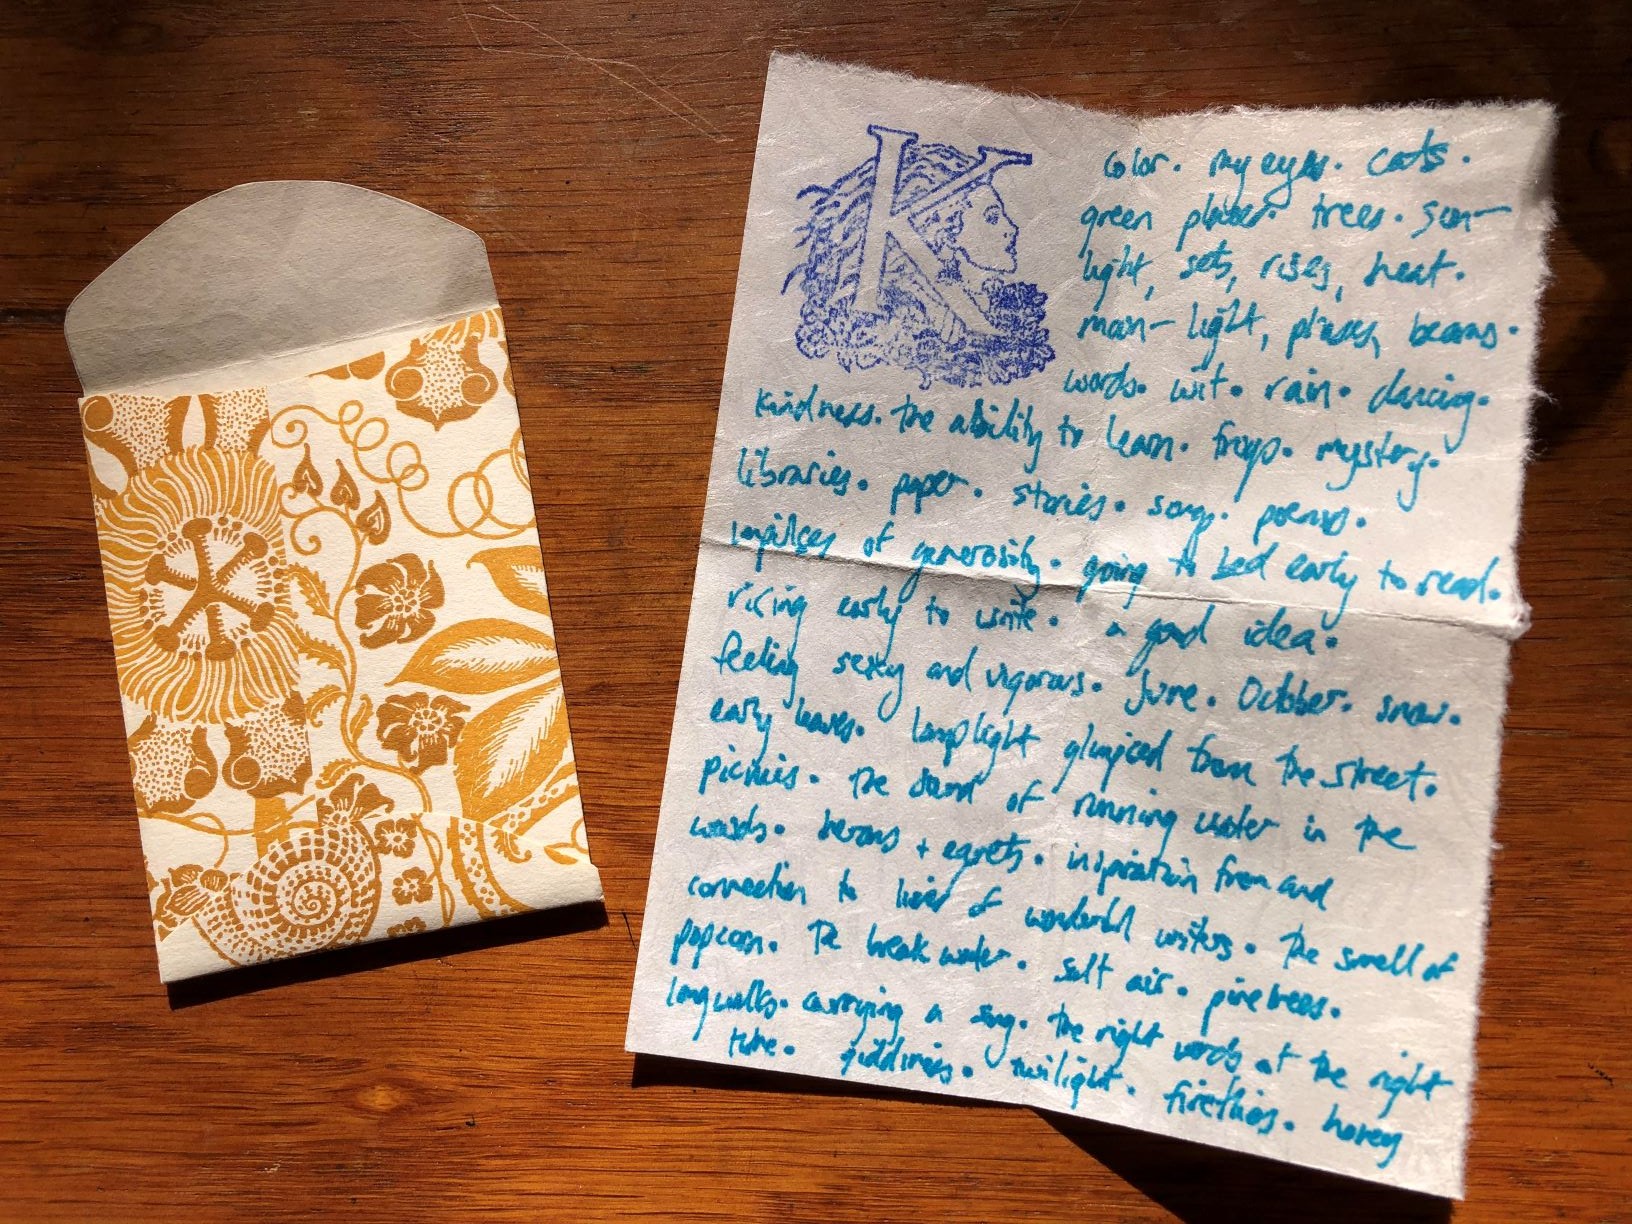 K
color. my eyes. cats.
green places. trees. sun–
light, sets, rises, heat.
moon– light, phases, beams.
words. wit. rain. dancing.
kindness. the ability to learn. frogs. mystery.
libraries. paper. stories. songs. poems.
impulses of generosity. going to bed early to read.
rising early to write. a good idea.
feeling sexy and vigorous. June. October. snow.
early leaves. lamplight glimpsed from the street.
picnics. the sound of running water in the
woods. herons + egrets. inspiration from and
connection to lives of wonderful writers. The smell of
popcorn. The breakwater. salt air. pine trees.
long walks. carrying a song. the right words at the right
time. giddiness. twilight. fireflies. honey